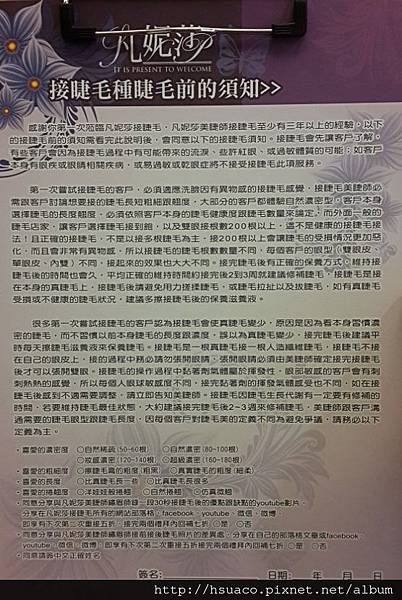 凡妮莎
IT IS PRESENT TO WELCOME
接睫毛種睫毛前的須知>>
感謝你第一次蒞臨凡妮莎接睫毛，凡妮莎美睫師接睫毛至少有三年以上的經驗，以下
的接睫毛前的須知需看完此說明後，會同意以下的接睫毛須知。接睫毛會先讓客戶了解，
有些客戶會因為接睫毛過程中有可能帶來的流淚、些許紅眼、或過敏體質的可能；如客戶
本身有眼疾或眼睛相關疾病，或易過敏或乾眼症將不接受接睫毛此項服務。
第一次嘗試接睫毛的客戶，必須適應洗臉因有異物感的接睫毛感覺，接睫毛美睫師必
需跟客戶討論想要接的睫毛長短粗細跟翹度，大部分的客戶都體驗自然濃密型，客戶本身
選擇睫毛的長度翹度，必須依照客戶本身的睫毛健康度跟睫毛數量來論定，而外面一般的
睫毛店家，讓客戶選擇睫毛接到飽，以及雙眼接根數200根以上，這不是健康的接睫毛接
法！且正確的接睫毛，不是以接多根睫毛為主，接200根以上會讓睫毛的受損情況更加惡
化，而且會非常有異物感，所以接睫毛的睫毛根數數量不同，每個客戶的眼型（雙眼皮、
單眼皮、內雙）不同，接起來的效果也大大不同。接完睫毛後有正確的保養方式，維持接
睫毛後的時間也會久，平均正確的維持時間約接完後2到3周就建議修補睫毛，接睫毛是接
在本身的真睫毛上，接睫毛後請避免用力搓揉睫毛，或睫毛拉扯以及拔睫毛，如有真睫毛
受損或不健康的睫毛狀況，建議多擦接睫毛後的保養滋養液。
很多第一次嘗試接睫毛的客戶認為接睫毛會使真睫毛變少，原因是因為看本身習慣濃
密的睫毛，而不習慣以前本身睫毛的長度跟濃度，誤以為真睫毛變少，接完睫毛後建議平
時每天擦睫毛滋養液來保養睫毛。接睫毛是一根真睫毛接一根人造纖維睫毛，接睫毛不接
在自己的眼皮上，接的過程中務必請勿張開眼睛，張開眼睛必須由美睫師確定接完接睫毛
後才可以張開雙眼。接睫毛的操作過程中黏著劑氣體屬於揮發性，眼部敏感的客戶會有刺
刺熱熱的感覺，所以每個人眼球敏感度不同，接完黏著劑的揮發氣體感受也不同，如在接
睫毛後感到不適需要調整，請立即告知美睫師。接睫毛因睫毛生長代謝有一定要有修補的
時間，若要維持睫毛最佳狀態，大約建議接完睫毛後2~3週來修補睫毛，美睫師跟客戶溝
通需要的睫毛眼型跟睫毛長度，因每個客戶對睫毛美的定義不同為避免爭議，請務必以下
定義為主。
·喜愛的濃密度 ○自然稀疏(50-60根) ○自然濃密(80-100根)
○妝感濃密(120-140根) ○超級濃密(160-180根)
·喜愛的粗細度 ○擦睫毛膏的粗度(粗黑) ○真實睫毛的粗度(細柔)
·喜愛的長度 ○比真睫毛長一些 ○比真睫毛長很多
·喜愛的捲翹度 ○洋娃娃般捲翹 ○自然捲翹 ○仿真微翹
·同意分享與凡妮莎美睫師錄影錄一段30秒接睫毛後的優點跟缺點的youtube影片、
分享在凡妮莎接睫毛所有的網站部落格、facebook、youtube、微信、微博，
即享有下次第二次重接五折，接完兩個禮拜內回補七折 ○是 ○否
·同意分享與凡妮莎美睫師錄接前接後睫毛照片的差異處，分享在自己的部落格文章或facebook、
youtube、微信、微博，即享有下次第二次重接五折接完兩個禮拜內回補七折 ○是 ○否
·同意請簽中文正確姓名
簽名: 日期: 年 月 日
http://hsuaco.pixnet.net/album